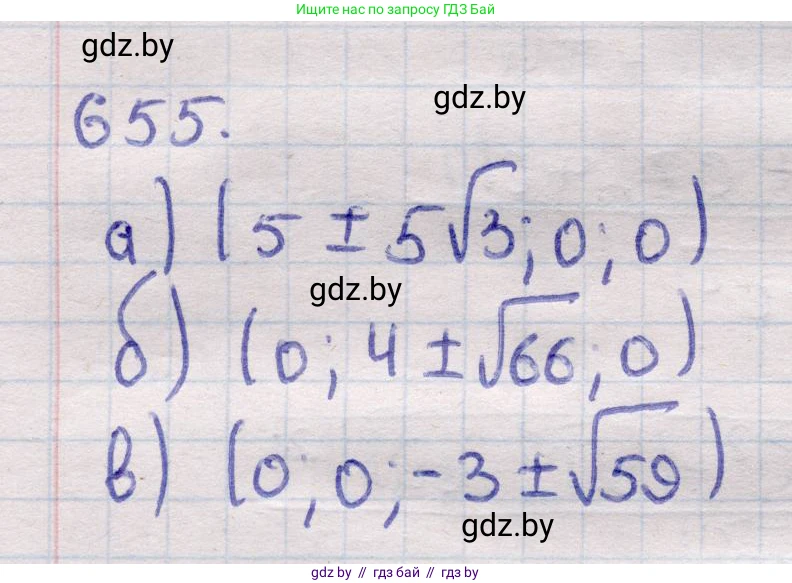 Ищите нас по запросу ГДЗ Бай
gdz.by
gdz.by
655.
а) (5 ± 5√3; 0; 0)
gdz.by
б) (0; 4 ± √66; 0)
в) (0; 0; -3 ± √59)
gdz.by
gdz.by // гдз бай // gdz.by